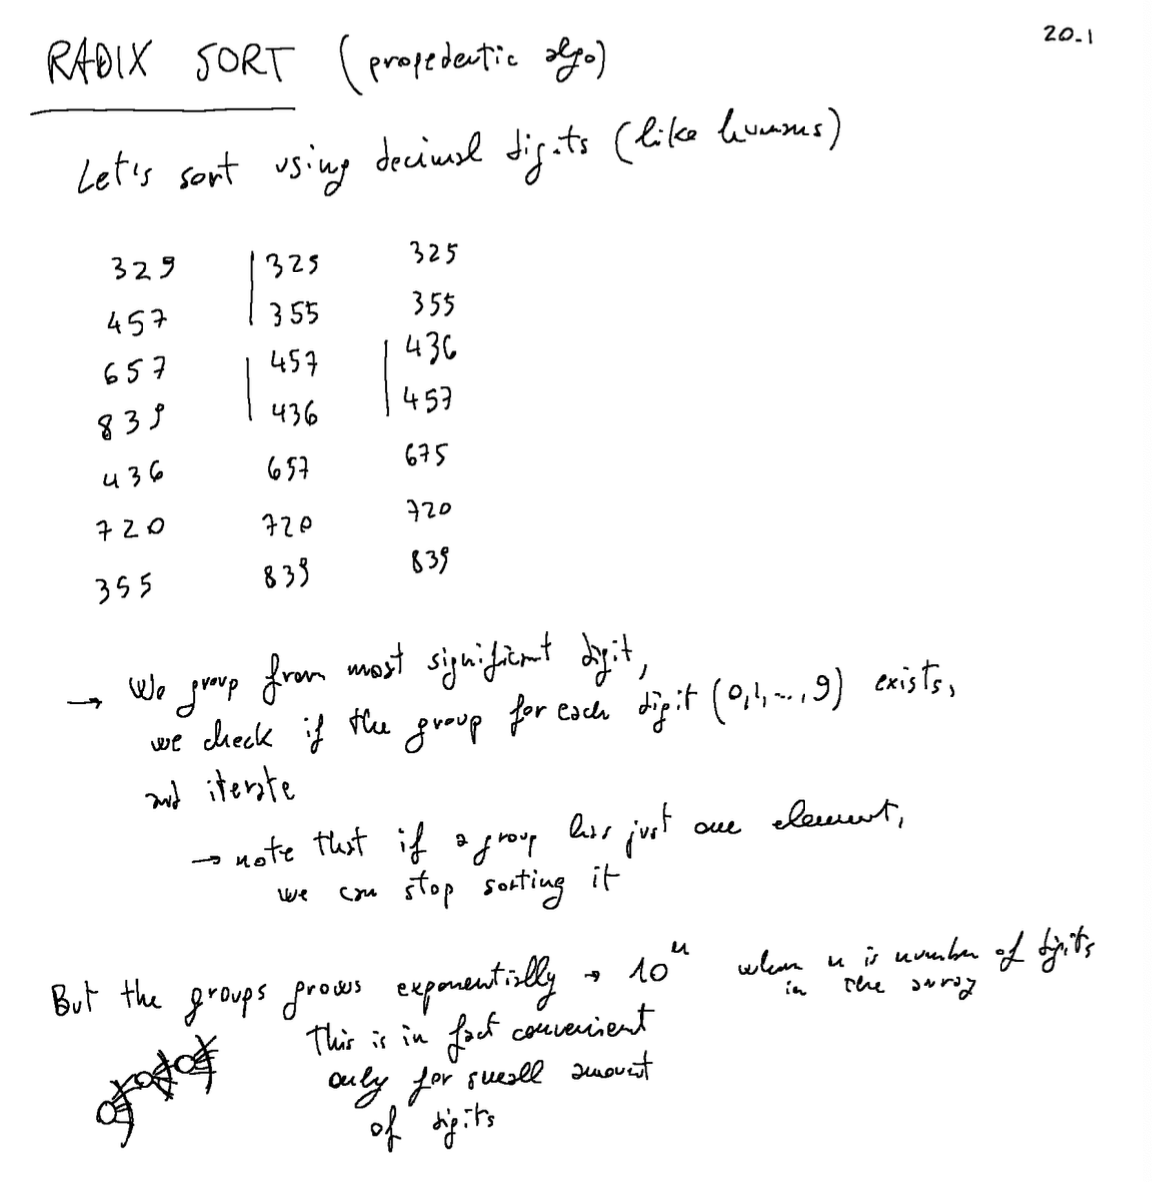 20-1
RADIX SORT (propedeutic algo)
Let's sort using decimal digits (like humans)
329 325 325
457 355 355
657 457 436
839 436 457
436 657 675
720 720 720
355 839 839
→ We group from most significant digit,
we check if the group for each digit (0,1,...,9) exists,
and iterate
→ note that if a group has just one element,
we can stop sorting it
But the groups grows exponentially → 10ⁿ when n is number of digits
in the array
This is in fact convenient
only for small amount
of digits